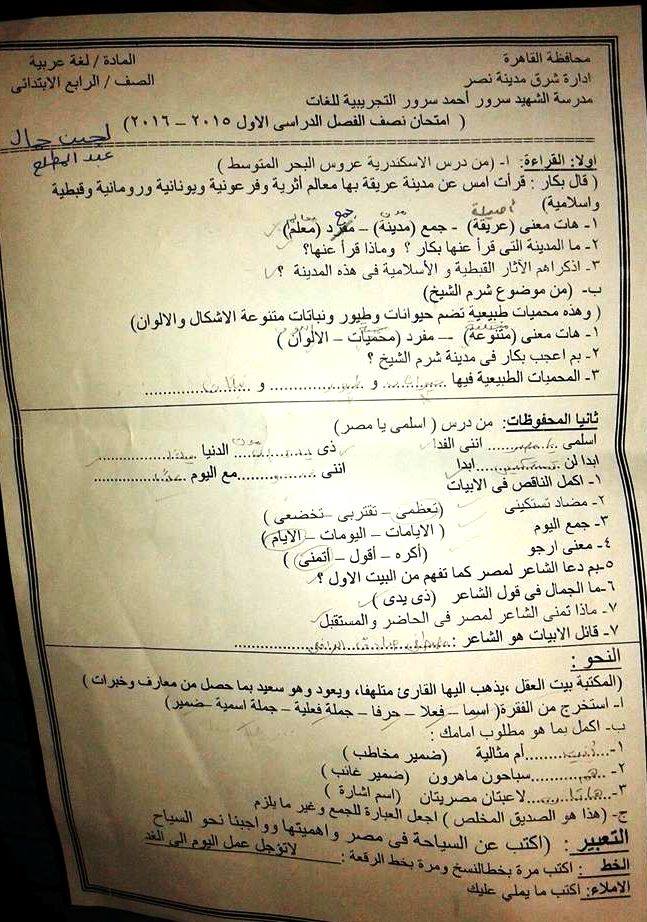 محافظة القاهرة
المادة / لغة عربية
ادارة شرق مدينة نصر
الصف / الرابع الابتدائى
مدرسة الشهيد سرور أحمد سرور التجريبية للغات
( امتحان نصف الفصل الدراسى الاول ٢٠١٥ – ٢٠١٦ )
اولا: القراءة: ا- (من درس الاسكندرية عروس البحر المتوسط )
( قال بكار : قرأت امس عن مدينة عريقة بها معالم أثرية وفرعونية ويونانية ورومانية وقبطية
واسلامية)
أصيلة مدن جمع
١- هات معنى (عريقة) - جمع (مدينة) – مفرد (معلم)
٢- ما المدينة التى قرأ عنها بكار ؟ وماذا قرأ عنها؟
٣- اذكر اهم الآثار القبطية و الأسلامية فى هذه المدينة ؟
ب- (من موضوع شرم الشيخ)
( وهذه محميات طبيعية تضم حيوانات وطيور ونباتات متنوعة الاشكال والالوان)
١- هات معنى (متنوعة) -- مفرد (محميات – الالوان )
٢- بم اعجب بكار فى مدينة شرم الشيخ ؟
٣- المحميات الطبيعية فيها ............ و ............ و ............
ثانيا المحفوظات: من درس ( اسلمى يا مصر)
اسلمى ............ اننى الفدا ذى ............ الدنيا ............
ابدا لن ............ ابدا اننى ............ مع اليوم ............
١- اكمل الناقص فى الابيات
٢- مضاد تستكينى (تعظمى – تقتربى –تخضعى )
٣- جمع اليوم ( الايامات – اليومات – الايام )
٤- معنى ارجو (أكره – أقول – أتمنى )
٥-بم دعا الشاعر لمصر كما تفهم من البيت الاول ؟
٦-ما الجمال فى قول الشاعر (ذى يدى )
٧- ماذا تمنى الشاعر لمصر فى الحاضر والمستقبل
٧- قائل الابيات هو الشاعر : ............
النحو :
(المكتبة بيت العقل ،يذهب اليها القارئ متلهفا، ويعود وهو سعيد بما حصل من معارف وخبرات )
ا- استخرج من الفقرة( اسما – فعلا – حرفا – جملة فعلية – جملة اسمية –ضمير)
ب- اكمل بما هو مطلوب امامك :
١- أنت أم مثالية (ضمير مخاطب )
٢- هم سباحون ماهرون (ضمير غائب )
٣- هاتان لاعبتان مصريتان (اسم اشارة )
ج- (هذا هو الصديق المخلص ) اجعل العبارة للجمع وغير ما يلزم
التعبير : (اكتب عن السياحة فى مصر واهميتها وواجبنا نحو السياح
الخط : اكتب مرة بخط النسخ ومرة بخط الرقعة : لاتؤجل عمل اليوم الى الغد
الاملاء: اكتب ما يملي عليك